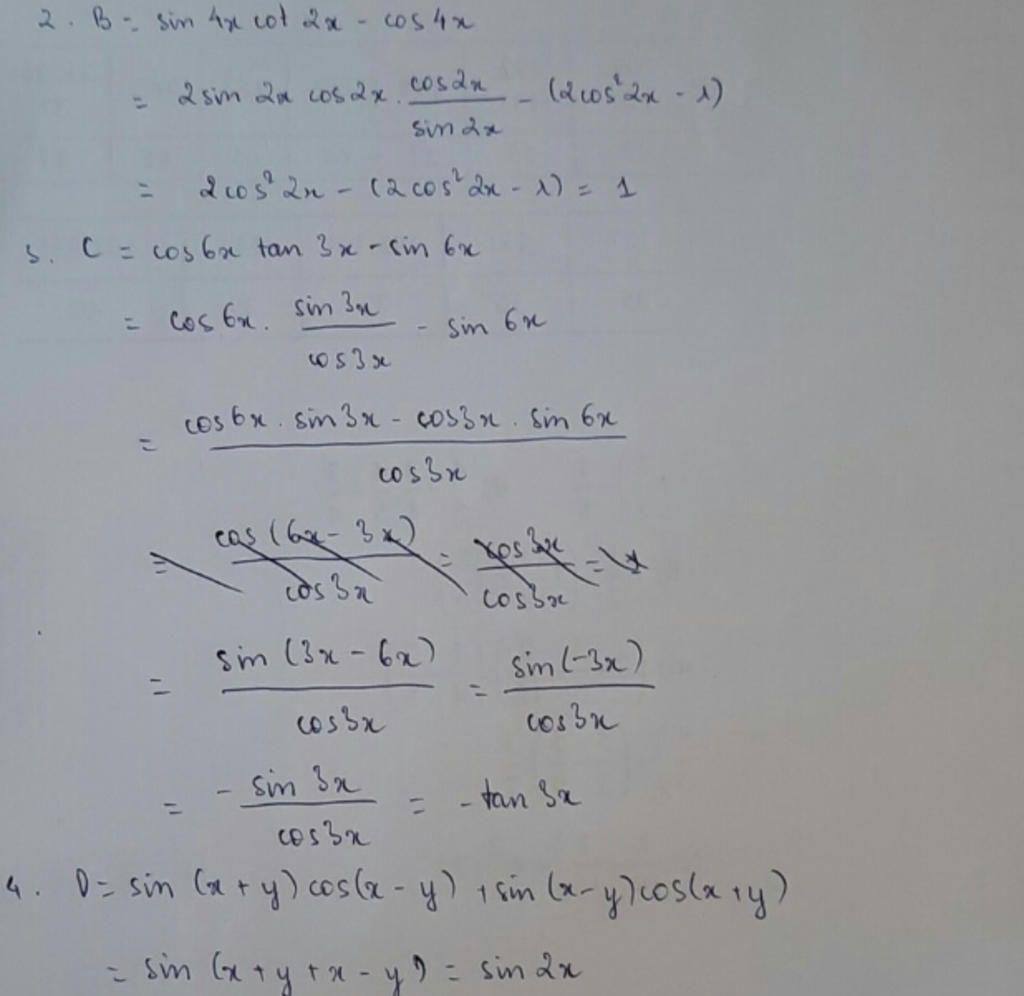 2. B = sin 4x cot 2x - cos 4x
= 2 sin 2x cos 2x . cos 2x / sin 2x - (2cos² 2x - 1)
= 2 cos² 2x - (2 cos² 2x - 1) = 1
3. C = cos 6x tan 3x - sin 6x
= cos 6x . sin 3x / cos 3x - sin 6x
= cos 6x . sin 3x - cos 3x . sin 6x / cos 3x
= cos (6x - 3x) / cos 3x = cos 3x / cos 3x = 1
= sin (3x - 6x) / cos 3x = sin (-3x) / cos 3x
= - sin 3x / cos 3x = - tan 3x
4. D = sin (x + y) cos (x - y) + sin (x - y) cos (x + y)
= sin (x + y + x - y) = sin 2x